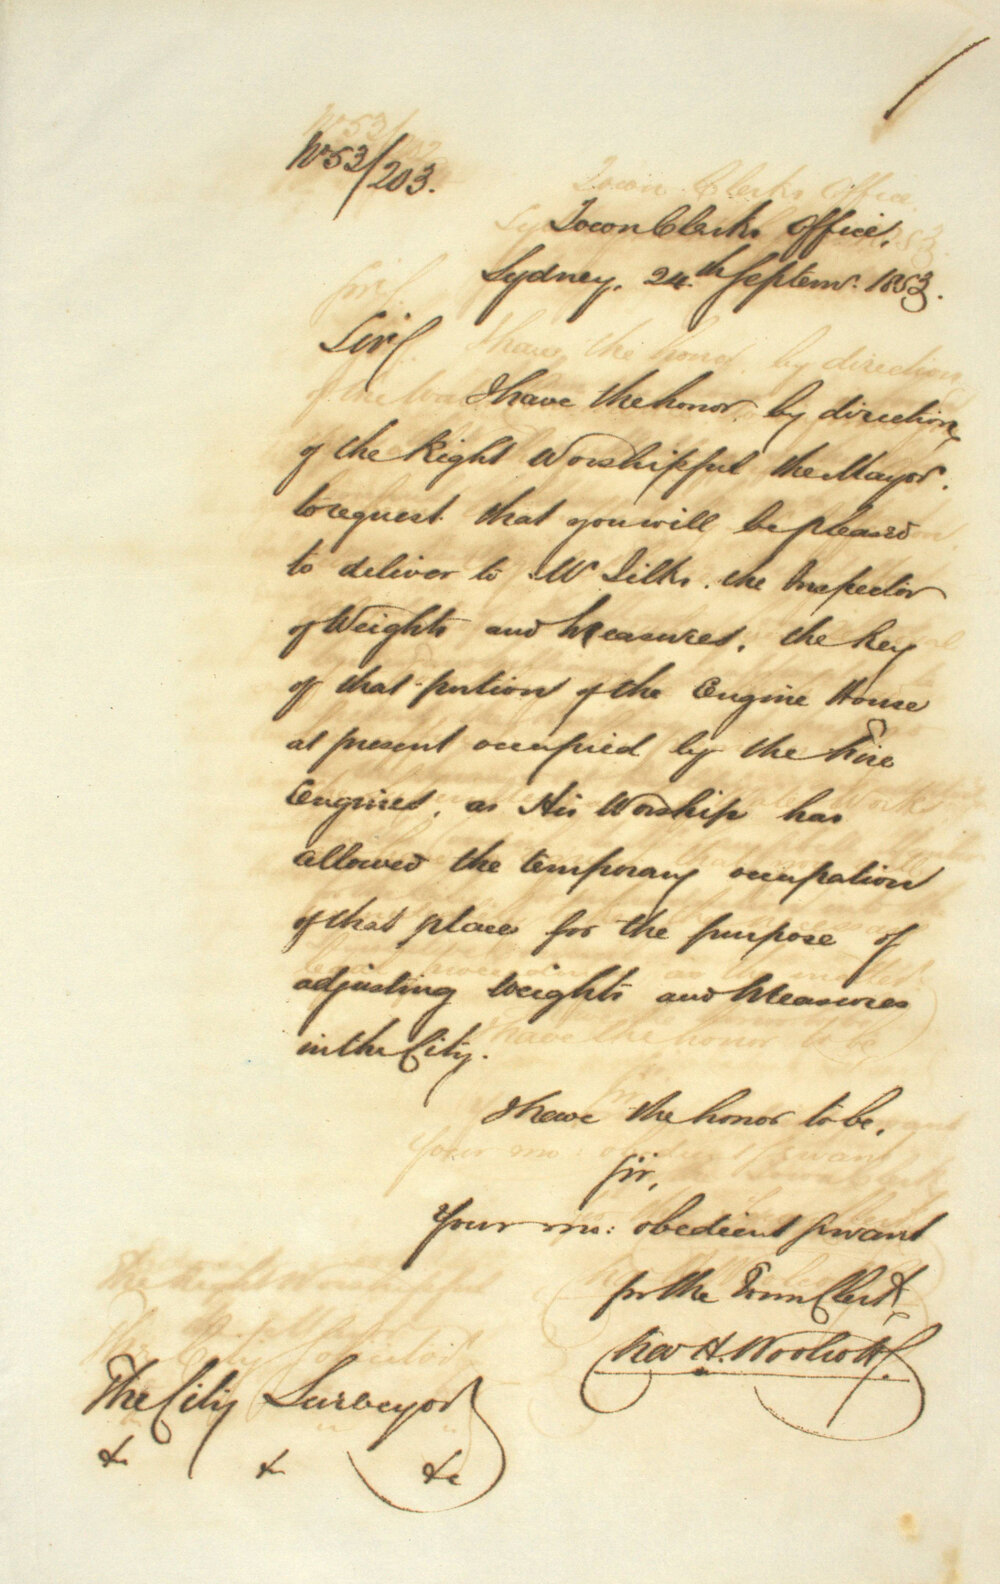 No 53/203.
Town Clerks Office,
Sydney, 24th Septemr. 1853.
Sir,
I have the honor, by direction
of the Right Worshipful the Mayor,
to request that you will be pleased
to deliver to Mr Silks, the Inspector
of Weights and Measures, the key
of that portion of the Engine House
at present occupied by the Fire
Engines, as His Worship has
allowed the temporary occupation
of that place for the purpose of
adjusting Weights and Measures
in the City.
I have the honor to be,
Sir,
Your mo: obedient Servant
for the Town Clerk
H. Woolcott
The City Surveyor
&c &c &c